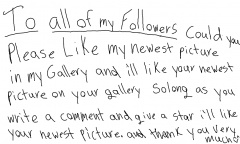 To all of my Followers Could you
Please Like my newest picture
in my Gallery and ill like your newest
picture on your gallery Solong as you
write a comment and give a star i'll like
your newest picture. and thank you very
much